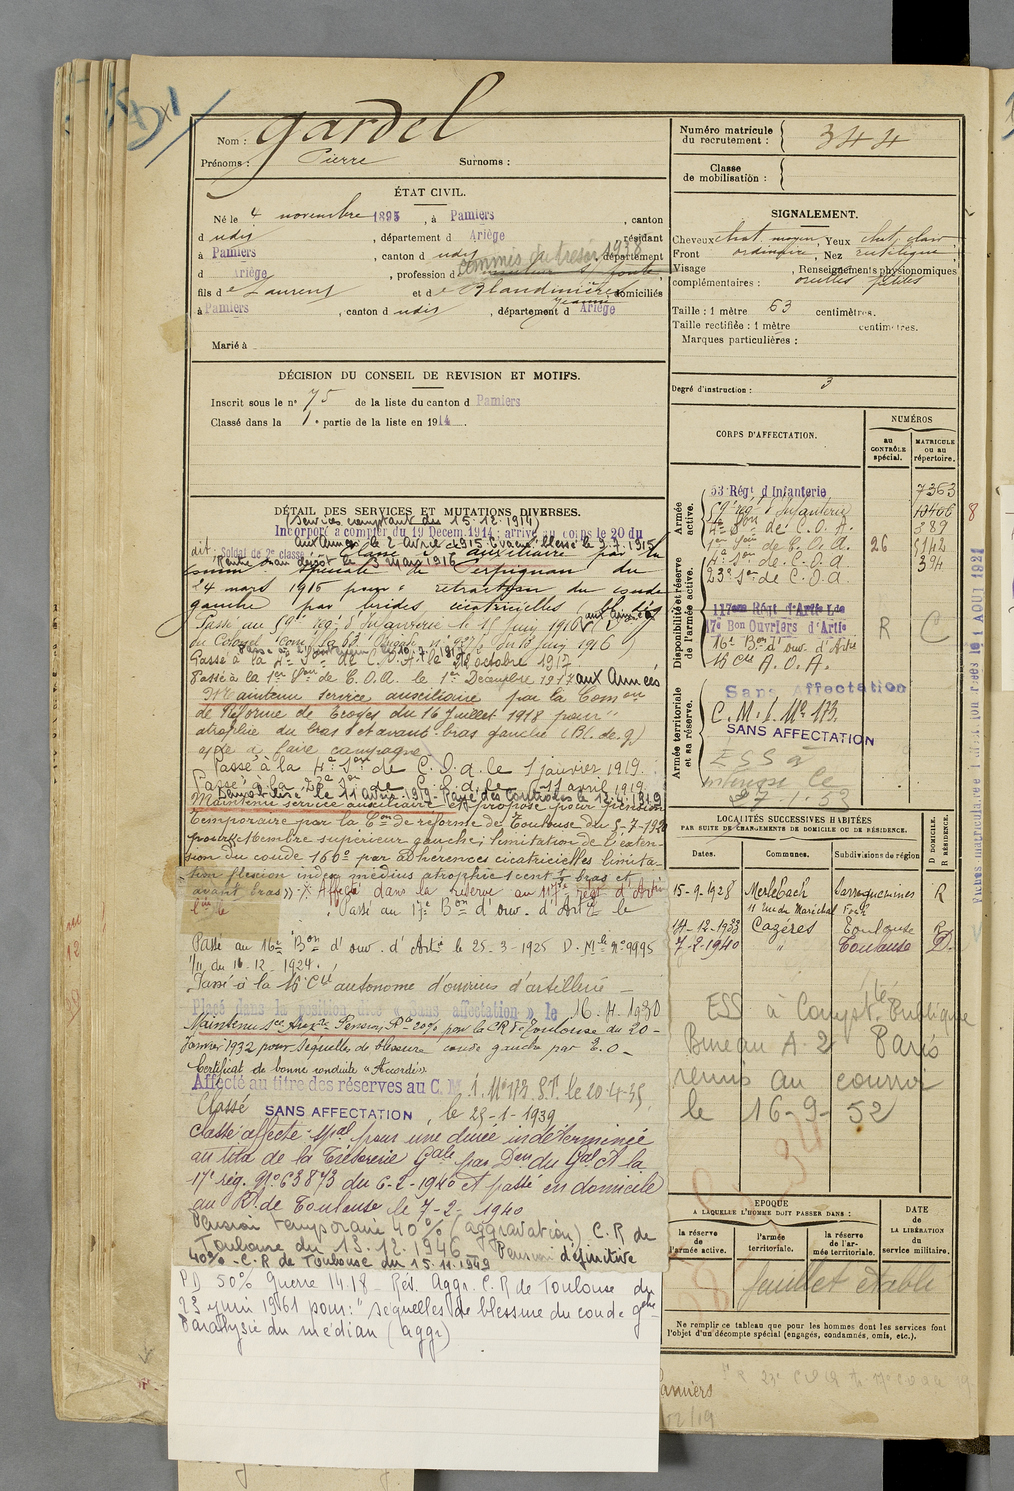 Nom : Gardel
Prénoms : Pierre Surnoms :
Numéro matricule du recrutement : 344
Classe de mobilisation :
ÉTAT CIVIL.
Né le 4 novembre 1895, à Pamiers, canton
d udis, département d Ariège, résidant
à Pamiers, canton d udis, département
d Ariège, profession d commis du trésor 1938
fils d e Laurent et d e Blandinières Jeanne domiciliés
à Pamiers, canton d udis, département d Ariège
Marié à
SIGNALEMENT.
Cheveux chat. moyen, Yeux chat. clair
Front ordinaire, Nez rectiligne
Visage, Renseignements physionomiques
complémentaires : oreilles petites
Taille : 1 mètre 63 centimètres.
Taille rectifiée : 1 mètre centimètres.
Marques particulières :
Degré d'instruction : 3
DÉCISION DU CONSEIL DE REVISION ET MOTIFS.
Inscrit sous le n° 75 de la liste du canton d Pamiers
Classé dans la 1e partie de la liste en 1914.
DÉTAIL DES SERVICES ET MUTATIONS DIVERSES.
(Services comptant du 15.12.1914)
Incorporé à compter du 19 Decem. 1914, arrivé au corps le 20 du
dit. Soldat de 2e classe
aux Armées le 2 Avril 1915. Evacué blessé le 9.7.1915
Rentré au dépôt le 3 mars 1916
Classé service auxiliaire par la
comon spéciale de Perpignan du
24 mars 1916 pour : rétraction du coude
gauche par brides cicatricielles
Passé au 59e rég. d'Infanterie le 15 Juin 1916
Passé à la 4e Son de C.O.A. le octobre 1917
Passé à la 1ere Son de C.O.A. le 1er Décembre 1917 aux Armées
Maintenu service auxiliaire par la Comon
de Réforme de Troyes du 16 Juillet 1918 pour "
atrophie du bras et avant-bras gauche (Bl. de g)
apte à faire campagne
Passé à la 4e Son de C.O.A. le 1 janvier 1919.
Passé à la 23e Son de C.O.A. le 11 avril 1919
Maintenu service auxiliaire et proposé pour pension
temporaire par la Con de réforme de Toulouse du 5-7-1920
pour : Membre supérieur gauche, limitation de l'exten-
sion du coude 160° par adhérences cicatricielles limita-
tion flexion index médius atrophie 1 cent 1/2 bras et
avant bras » Affecté dans la réserve au 117e Régt d'Artie
Passé au 17e Bon d'ouv. d'Artie le
Passé au 16e Bon d'ouv. d'Artie le 25-3-1925 D. Mle n° 9995
1/11 du 16-12-1924.
Passé à la 16 Cie autonome d'ouvriers d'artillerie
Placé dans la position « sans affectation » le 16.4.1930
Maintenu sce Auxre Pension Pte 20% par la C.R. de Toulouse du 20-
Janvier 1932 pour séquelles de blessure coude gauche par E.O -
Certificat de bonne conduite « Accordé »
Affecté au titre des réserves au C.M. I. N° 173 S.P. le 20-4-35
Classé SANS AFFECTATION, le 25-1-1939
classé affecté spal pour une durée indéterminée
au titre de la Trésorerie Gale par Don du Gal Ct la
17e rég. N° 63873 du 6-2-1940 et passé en domicile
au R. de Toulouse le 7-2-1940
Pension temporaire 40% (aggravation) C.R de
Toulouse du 13.12.1946 Pension définitive
40% - C.R de Toulouse du 15.11.1949
PD 50% Guerre 14.18 - Rév. Aggr. C.R de Toulouse du
23 juin 1961 pour : "Séquelles de blessure du coude gche
Paralysie du médian (aggr)
CORPS D'AFFECTATION.
NUMÉROS
au CONTRÔLE spécial.
MATRICULE ou au répertoire.
Armée active.
53e Régt d'Infanterie 7363
59e rég. d'Infanterie 10406
4e Son de C.O.A. 389
1ere Son de C.O.A. 26 5142
4e Son de C.O.A. 394
23e Son de C.O.A.
Disponibilité et réserve de l'armée active.
117eme Régt d'Artie Lde
17e Bon Ouvriers d'Artie R C
16e Bon d'ouv. d'Artie
16 Cie A.O.A.
Armée territoriale et sa réserve.
Sans Affectation
C.M.I. N° 173.
SANS AFFECTATION
ESS à
le
27.1.53
LOCALITÉS SUCCESSIVES HABITÉES
PAR SUITE DE CHANGEMENTS DE DOMICILE OU DE RÉSIDENCE.
Dates. Communes. Subdivisions de région D DOMICILE. R RÉSIDENCE.
15-9-1928 Merlebach Sarreguemines R
11 rue du Maréchal Foch
14-12-1933 Cazères Toulouse R
7-2-1940 " Toulouse D.
ESS à Compt.té Publique
Bureau A-2 Paris
remis au courrier
le 16-9-52
EPOQUE
A LAQUELLE L'HOMME DOIT PASSER DANS :
la réserve de l'armée active.
l'armée territoriale.
la réserve de l'armée territoriale.
DATE de LA LIBÉRATION du service militaire.
feuillet établi
Ne remplir ce tableau que pour les hommes dont les services font
l'objet d'un décompte spécial (engagés, condamnés, omis, etc.).
Pamiers